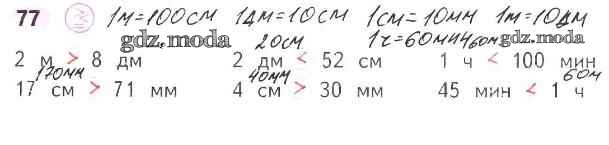 77 1м=100см 1дм=10см 1см=10мм 1м=10дм
gdz.moda 20см 1ч=60мин 60м gdz.moda
2 м > 8 дм 2 дм < 52 см 1 ч < 100 мин
170мм 40мм 60м
17 см > 71 мм 4 см > 30 мм 45 мин < 1 ч